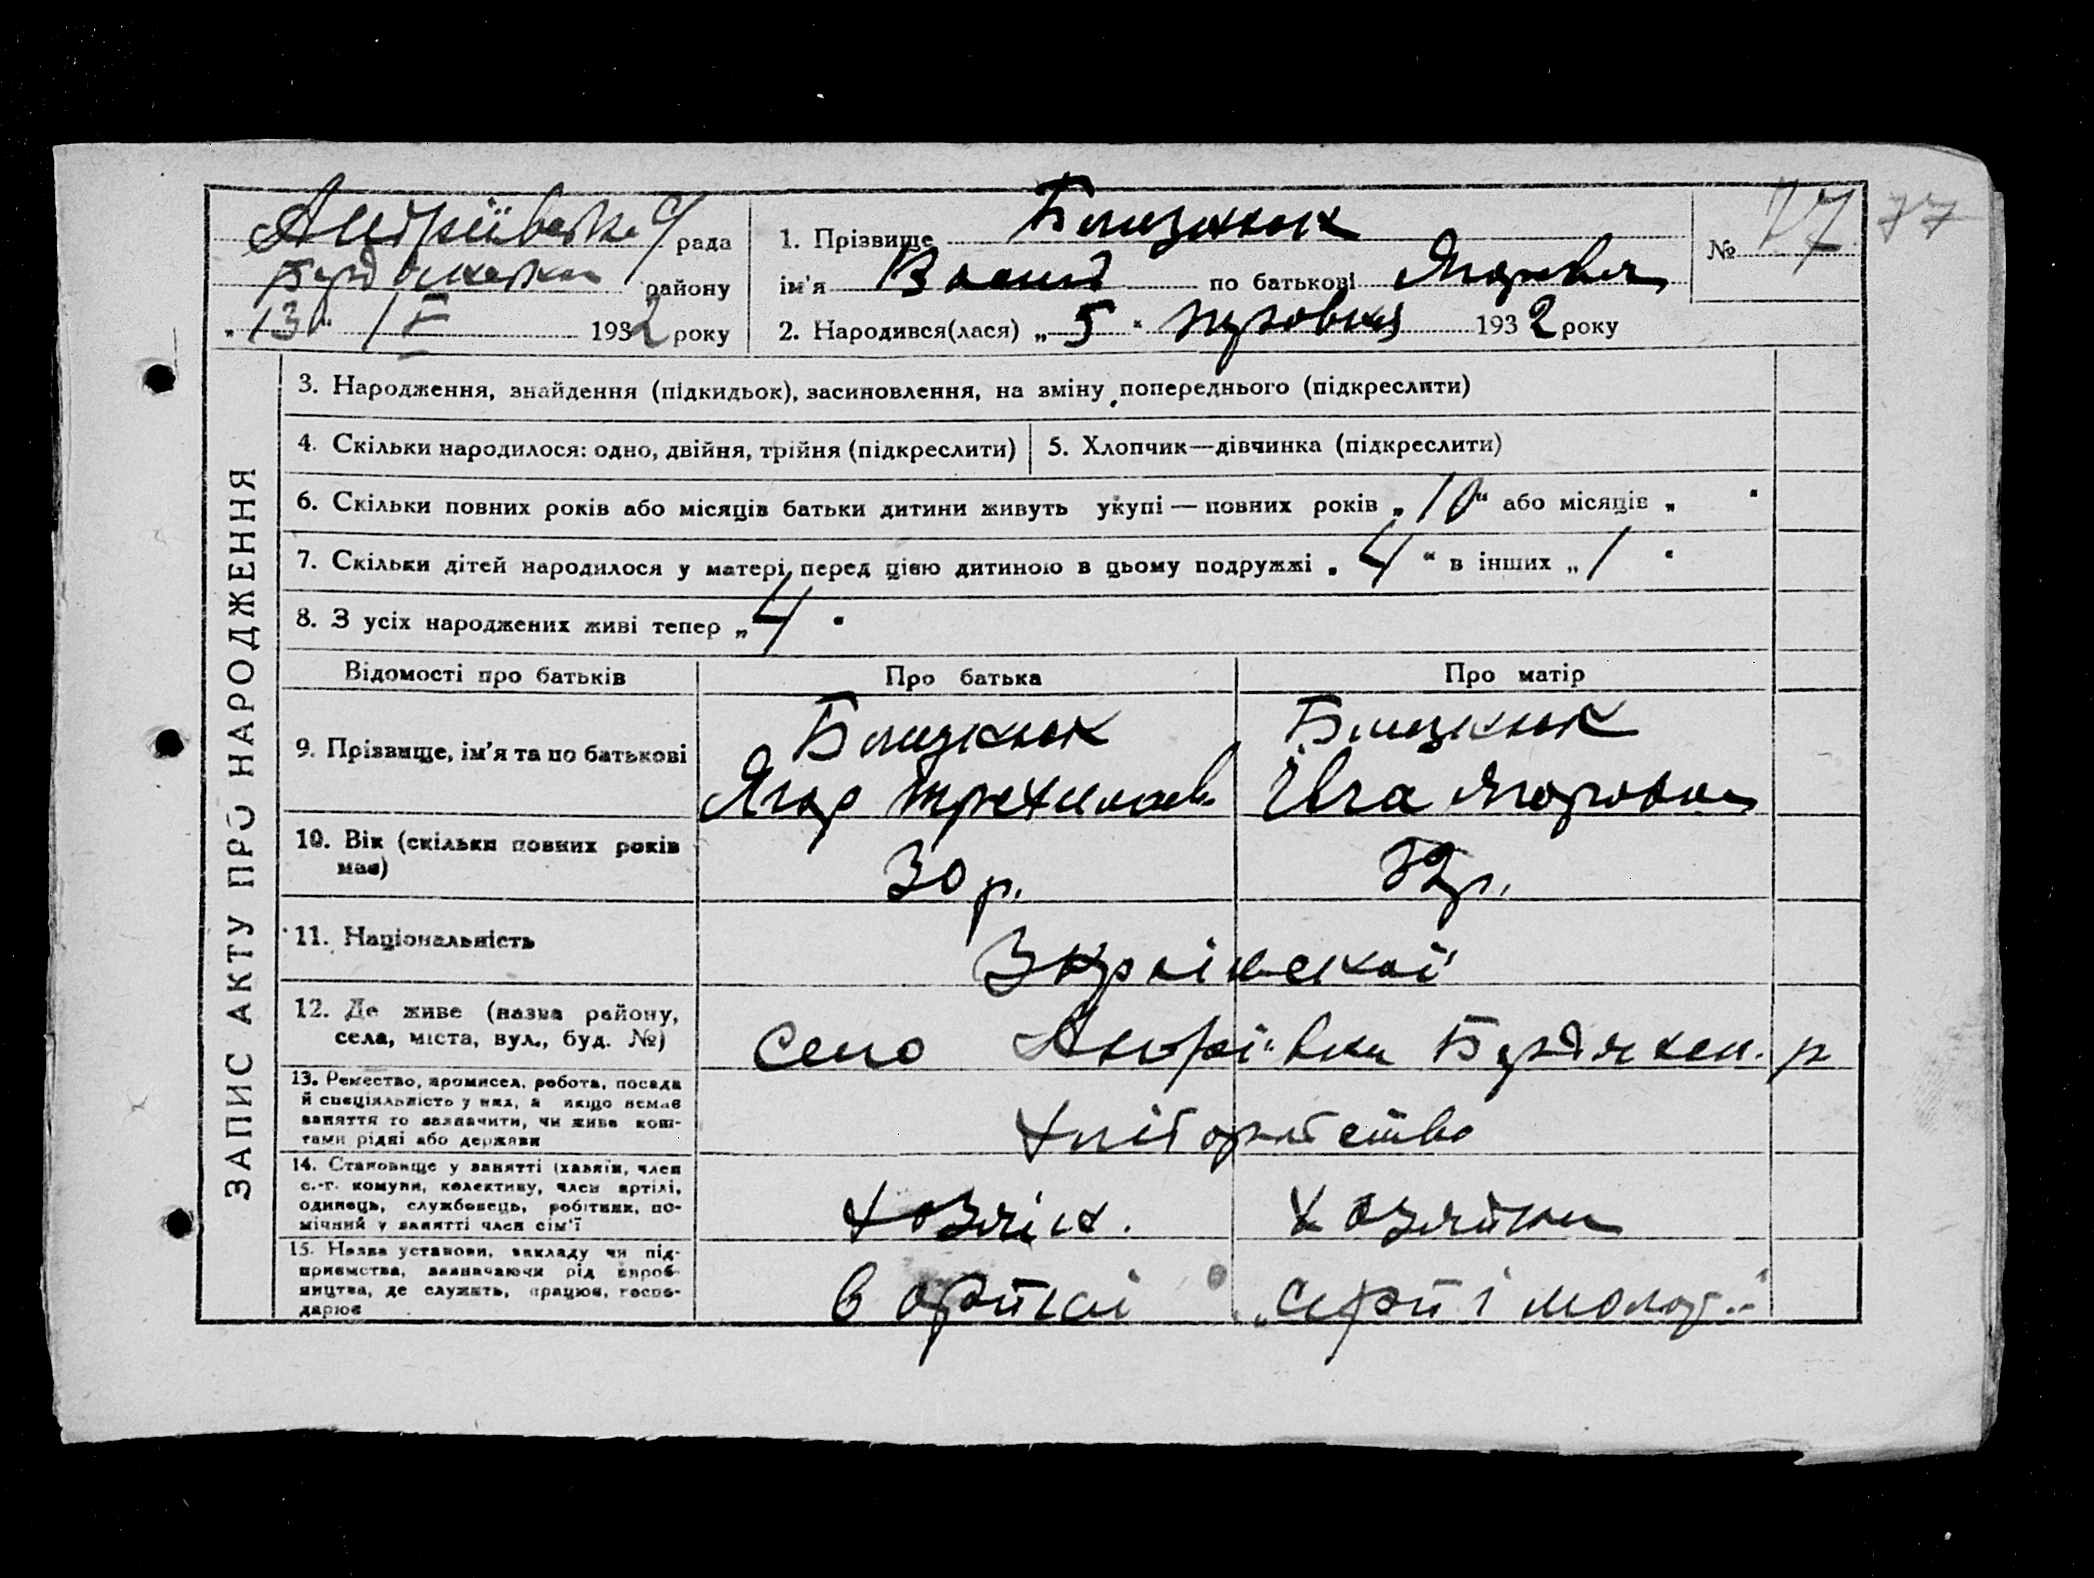 Андріївська с/рада
Бердянська району
„13“ IV 1932 року
1. Прізвище Близнюк
ім'я Василь по батькові Ягорович
2. Народився(лася) „5“ 1932 року
№ 77
77
ЗАПИС АКТУ ПРО НАРОДЖЕННЯ
3. Народження, знайдення (підкидьок), засиновлення, на зміну попереднього (підкреслити)
4. Скільки народилося: одно, двійня, трійня (підкреслити)
5. Хлопчик—дівчинка (підкреслити)
6. Скільки повних років або місяців батьки дитини живуть укупі — повних років „10“ або місяців „ “
7. Скільки дітей народилося у матері перед цією дитиною в цьому подружжі „4“ в інших „1“
8. З усіх народжених живі тепер „4“
Відомості про батьків Про батька Про матір
9. Прізвище, ім'я та по батькові
Близнюк
Ягор
Близнюк
Ївга Ягоровна
10. Вік (скільки повних років має)
30 р. 32 р.
11. Національність
Украінскої
12. Де живе (назва району, села, міста, вул., буд. №)
село Андріївка Бердянськ. р
13. Ремество, промисел, робота, посада й спеціяльність у них, а якщо немає заняття то зазначити, чи живе коштами рідні або держави
хліборобство
14. Становище у занятті (хазяїн, член с.-г. комуни, колективу, член артілі, одинець, службовець, робітник, помічний у занятті член сім'ї
хозяін. хозяйка
15. Назва установи, закладу чи підприємства, зазначаючи рід виробництва, де служить, працює, господарює
в артілі „серп і молот“